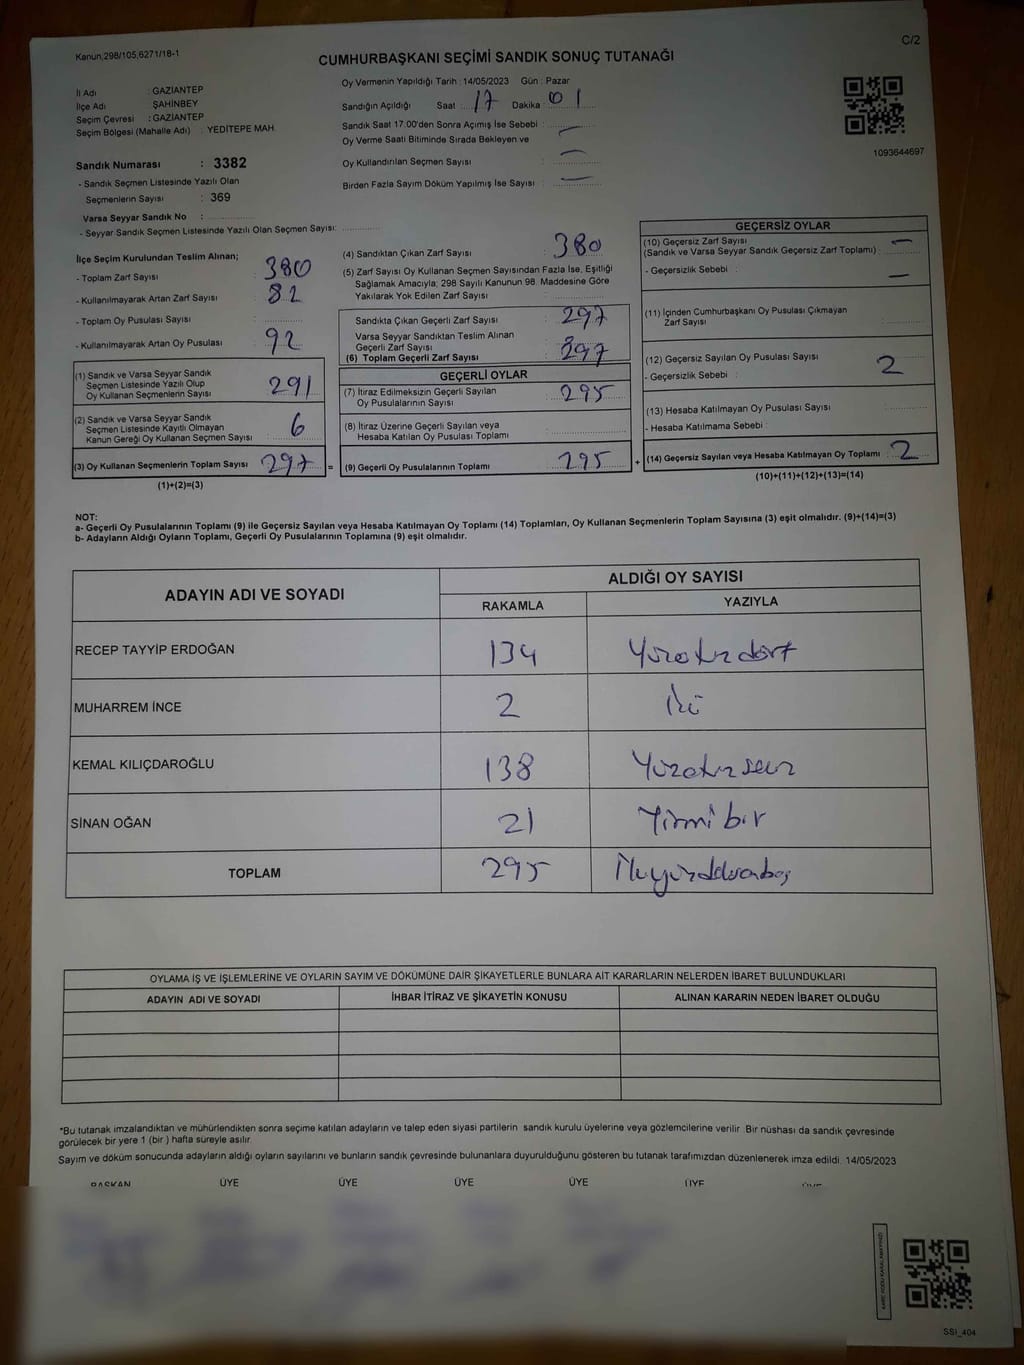 Kanun;298/105,6271/18-1
C/2
CUMHURBAŞKANI SEÇİMİ SANDIK SONUÇ TUTANAĞI
İl Adı : GAZİANTEP
İlçe Adı : ŞAHİNBEY
Seçim Çevresi : GAZİANTEP
Seçim Bölgesi (Mahalle Adı) : YEDİTEPE MAH.
Sandık Numarası : 3382
- Sandık Seçmen Listesinde Yazılı Olan
Seçmenlerin Sayısı : 369
Varsa Seyyar Sandık No :
- Seyyar Sandık Seçmen Listesinde Yazılı Olan Seçmen Sayısı:
Oy Vermenin Yapıldığı Tarih : 14/05/2023 Gün : Pazar
Sandığın Açıldığı Saat : 17 Dakika : 01
Sandık Saat 17:00'den Sonra Açımış İse Sebebi : —
Oy Verme Saati Bitiminde Sırada Bekleyen ve
Oy Kullandırılan Seçmen Sayısı : —
Birden Fazla Sayım Döküm Yapılmış İse Sayısı : —
1093644697
İlçe Seçim Kurulundan Teslim Alınan;
- Toplam Zarf Sayısı : 380
- Kullanılmayarak Artan Zarf Sayısı : 82
- Toplam Oy Pusulası Sayısı :
- Kullanılmayarak Artan Oy Pusulası : 92
(1) Sandık ve Varsa Seyyar Sandık
Seçmen Listesinde Yazılı Olup
Oy Kullanan Seçmenlerin Sayısı : 291
(2) Sandık ve Varsa Seyyar Sandık
Seçmen Listesinde Kayıtlı Olmayan
Kanun Gereği Oy Kullanan Seçmen Sayısı : 6
(3) Oy Kullanan Seçmenlerin Toplam Sayısı : 297 =
(1)+(2)=(3)
(4) Sandıktan Çıkan Zarf Sayısı : 380
(5) Zarf Sayısı Oy Kullanan Seçmen Sayısından Fazla İse, Eşitliği
Sağlamak Amacıyla; 298 Sayılı Kanunun 98. Maddesine Göre
Yakılarak Yok Edilen Zarf Sayısı :
Sandıkta Çıkan Geçerli Zarf Sayısı : 297
Varsa Seyyar Sandıktan Teslim Alınan
Geçerli Zarf Sayısı :
(6) Toplam Geçerli Zarf Sayısı : 297
GEÇERLİ OYLAR
(7) İtiraz Edilmeksizin Geçerli Sayılan
Oy Pusulalarının Sayısı : 295
(8) İtiraz Üzerine Geçerli Sayılan veya
Hesaba Katılan Oy Pusulası Toplamı :
(9) Geçerli Oy Pusulalarının Toplamı : 295 +
GEÇERSİZ OYLAR
(10) Geçersiz Zarf Sayısı
(Sandık ve Varsa Seyyar Sandık Geçersiz Zarf Toplamı) : —
- Geçersizlik Sebebi : —
(11) İçinden Cumhurbaşkanı Oy Pusulası Çıkmayan
Zarf Sayısı :
(12) Geçersiz Sayılan Oy Pusulası Sayısı : 2
- Geçersizlik Sebebi :
(13) Hesaba Katılmayan Oy Pusulası Sayısı :
- Hesaba Katılmama Sebebi :
(14) Geçersiz Sayılan veya Hesaba Katılmayan Oy Toplamı : 2
(10)+(11)+(12)+(13)=(14)
NOT:
a- Geçerli Oy Pusulalarının Toplamı (9) ile Geçersiz Sayılan veya Hesaba Katılmayan Oy Toplamı (14) Toplamları, Oy Kullanan Seçmenlerin Toplam Sayısına (3) eşit olmalıdır. (9)+(14)=(3)
b- Adayların Aldığı Oyların Toplamı, Geçerli Oy Pusulalarının Toplamına (9) eşit olmalıdır.
ADAYIN ADI VE SOYADI
ALDIĞI OY SAYISI
RAKAMLA YAZIYLA
RECEP TAYYİP ERDOĞAN 134 Yüzotuzdört
MUHARREM İNCE 2 İki
KEMAL KILIÇDAROĞLU 138 Yüzotuzsekiz
SİNAN OĞAN 21 Yirmibir
TOPLAM 295 İkiyüzdoksanbeş
OYLAMA İŞ VE İŞLEMLERİNE VE OYLARIN SAYIM VE DÖKÜMÜNE DAİR ŞİKAYETLERLE BUNLARA AİT KARARLARIN NELERDEN İBARET BULUNDUKLARI
ADAYIN ADI VE SOYADI İHBAR İTİRAZ VE ŞİKAYETİN KONUSU ALINAN KARARIN NEDEN İBARET OLDUĞU
*Bu tutanak imzalandıktan ve mühürlendikten sonra seçime katılan adayların ve talep eden siyasi partilerin sandık kurulu üyelerine veya gözlemcilerine verilir. Bir nüshası da sandık çevresinde
görülecek bir yere 1 (bir ) hafta süreyle asılır.
Sayım ve döküm sonucunda adayların aldığı oyların sayılarını ve bunların sandık çevresinde bulunanlara duyurulduğunu gösteren bu tutanak tarafımızdan düzenlenerek imza edildi. 14/05/2023
BAŞKAN ÜYE ÜYE ÜYE ÜYE ÜYE ÜYE
SSI_404